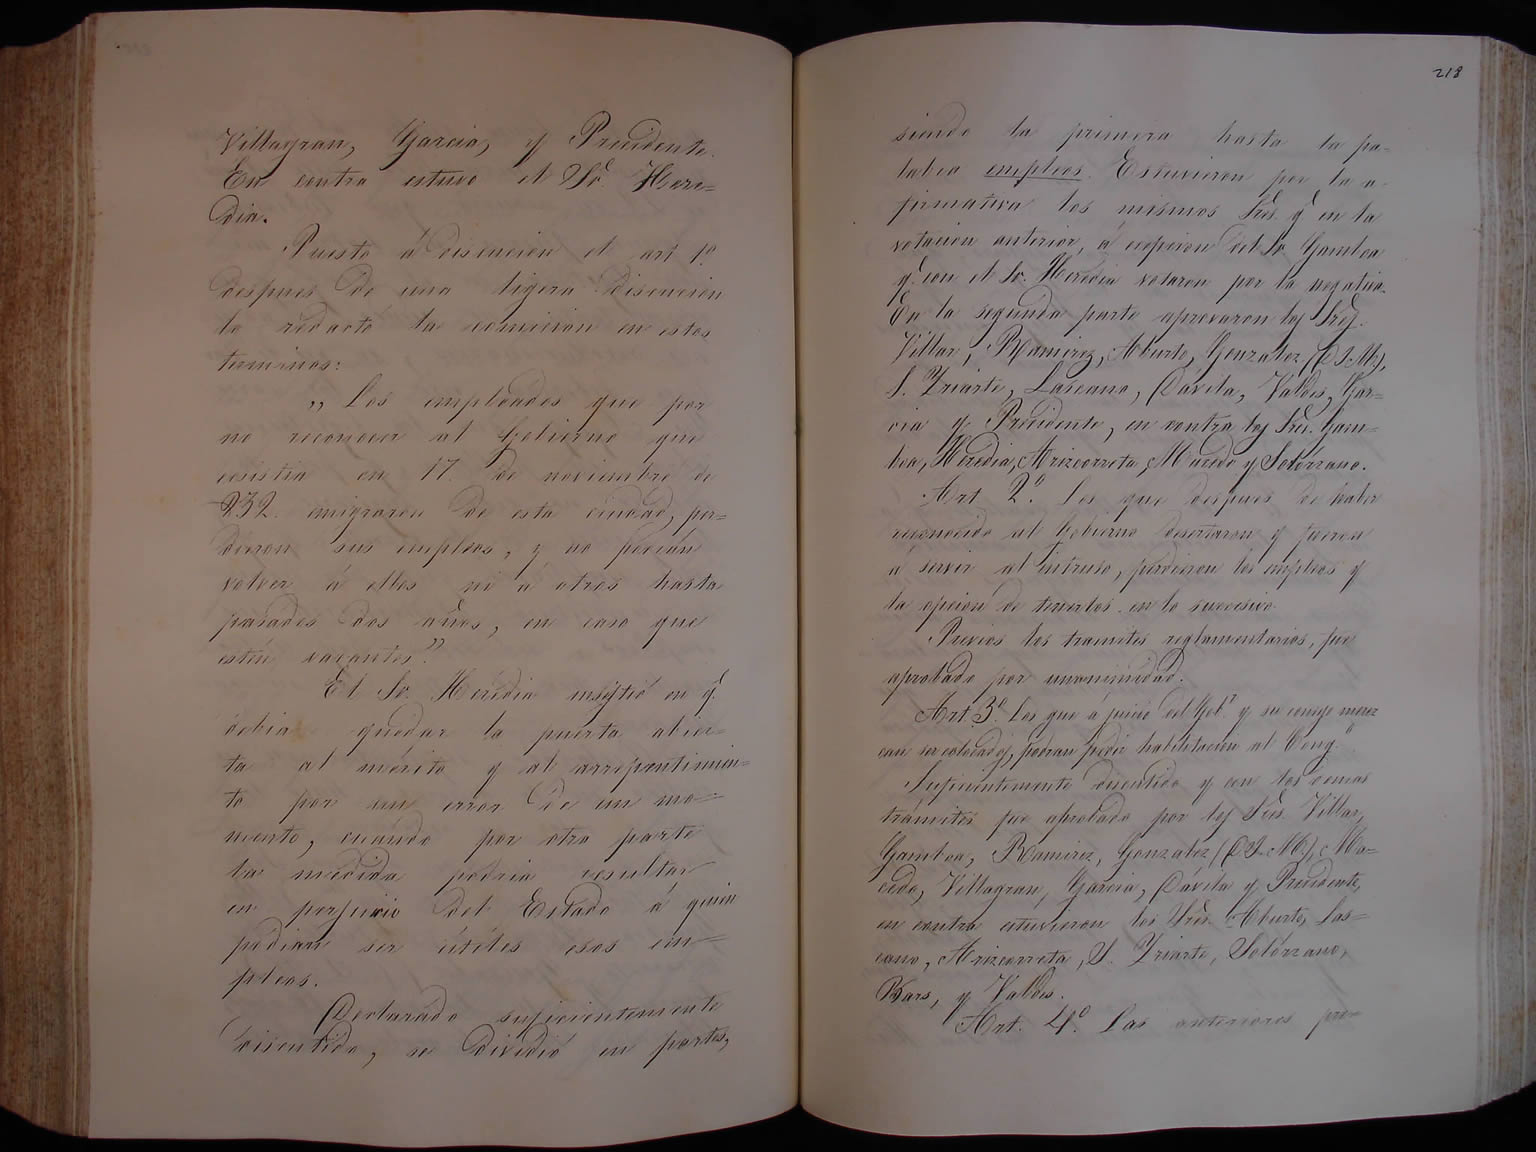 Villagran, Garcia, y Presidente.
En contra estuvo el Sr. Here=
dia.
Puesto á discucion el art 1º
despues de una ligera discucion
lo redactó la comicion en estos
terminos:
,, Los empleados que por
no reconocer al Gobierno que
ecsistia en 17. de noviembre de
832. emigraron de esta ciudad, per=
dieron sus empleos, y no podrán
volver á ellos ni á otros hasta
pasados dos años, en caso que
estén vacantes."
El Sr. Heredia insistió en q.
debia quedar la puerta abier=
ta al mérito y al arrepentimien=
to por un error de un mo=
mento, cuándo por otra parte
la medida podria resultar
en perjuicio del Estado á quien
podian ser útiles esos em=
pleos.
Declarado suficientemente
discutido, se dividió en partes,
218
siendo la primera hasta la pa=
labra empleos. Estuvieron por la a=
firmativa los mismos Sres. q. en la
votacion anterior, á ecepcion del Sr. Gamboa
q. con el Sr. Heredia votaron por la negativa.
En la segunda parte aprovaron los Sres.
Villar, Ramirez, Aburto, Gonzalez (D. J. M.),
S. Yriarte, Lascano, Dávila, Valdes, Gar=
cia y Presidente, en contra los Sres. Gam=
boa, Heredia, Arizcorreta, Macedo y Solorzano.
Art. 2º. Los que despues de haber
reconocido al Gobierno desertaron y fueron
á servir al intruso, perdieron los empleos y
la opcion de tenerlos en lo succesivo.
Previos los tramites reglamentarios, fue
aprobado por unanimidad.
Art. 3º. Los que á juicio del Gobº. y su consejo merez
can ser colocados, podran pedir habilitacion al Congº.
Suficientemente discutido y con los demas
trámites fue aprobado por los Sres. Villar,
Gamboa, Ramirez, Gonzalez (D. J. M.), Ma=
cedo, Villagran, Garcia, Dávila y Presidente,
en contra estuvieron los Sres. Aburto, Las=
cano, Arizcorreta, S. Yriarte, Solórzano,
y Valdes.
Art. 4º. Las anteriores pre=